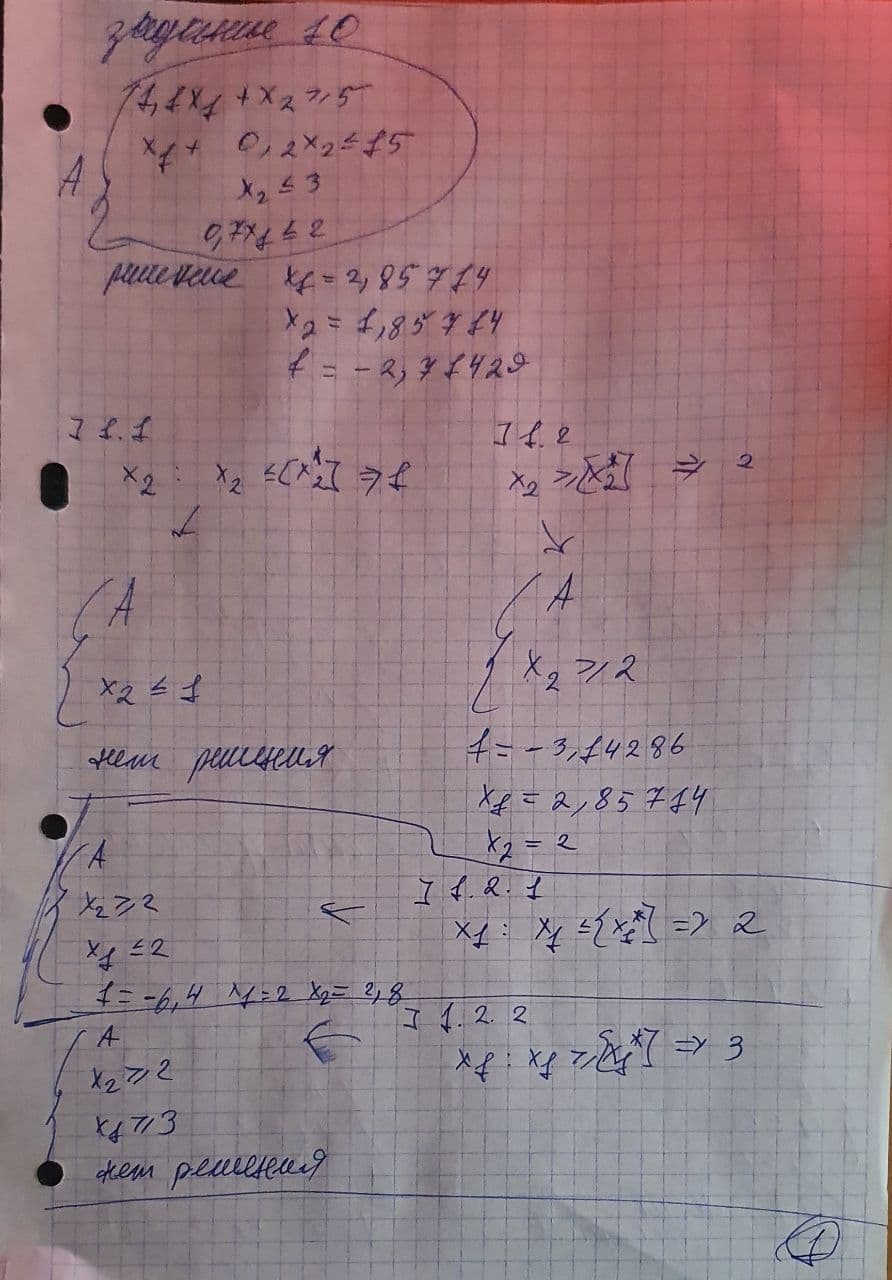 задание 10
A
1,1x₁ + x₂ ≥ 5
x₁ + 0,2x₂ ≤ 15
x₂ ≤ 3
0,7x₁ ≤ 2
решение x₁ = 2,85714
x₂ = 1,85714
f = -2,71429
] 1.1
x₂ : x₂ ≤ [x₂*] ⇒ 1
↙
{ A
x₂ ≤ 1
нет решения
] 1.2
x₂ ≥ [x₂*] ⇒ 2
↘
{ A
x₂ ≥ 2
f = -3,14286
x₁ = 2,85714
x₂ = 2
] 1.2.1
x₁ : x₁ ≤ [x₁*] ⇒ 2
←
{ A
x₂ ≥ 2
x₁ ≤ 2
f = -6,4 x₁ = 2 x₂ = 2,8
] 1.2.2
x₁ : x₁ ≥ [x₁*] ⇒ 3
←
{ A
x₂ ≥ 2
x₁ ≥ 3
нет решения
1